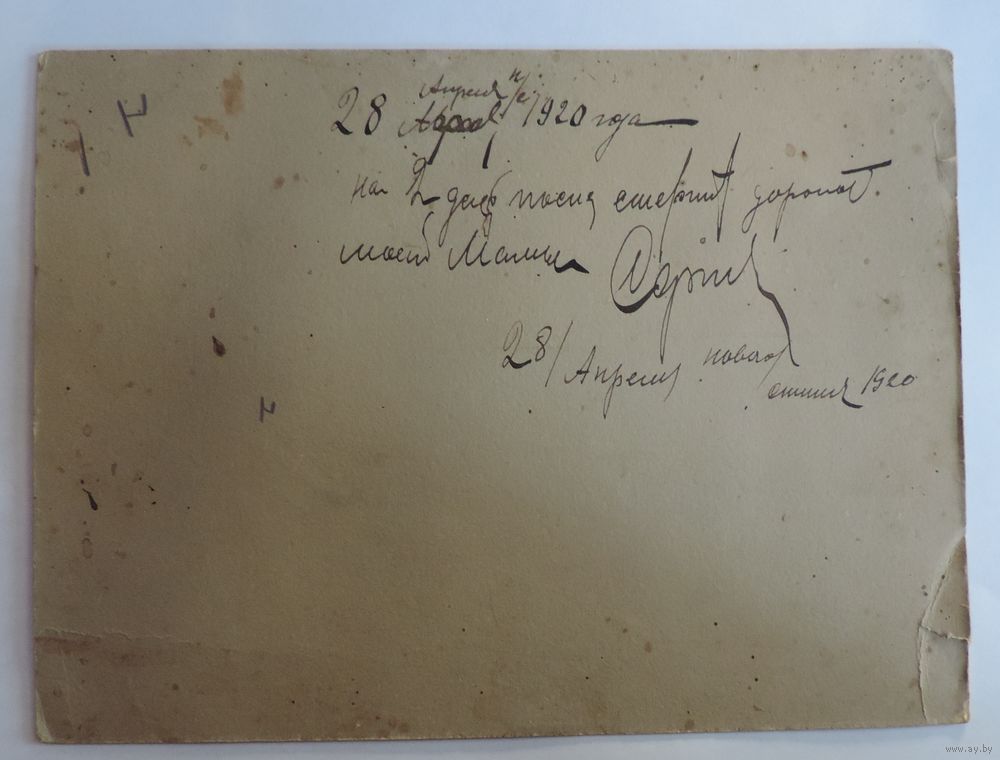 Апреля н/с
28 1920 года
на 2 день после смерти дорогой
моей Мамы
28/Апреля нового
стиля 1920
www.ay.by